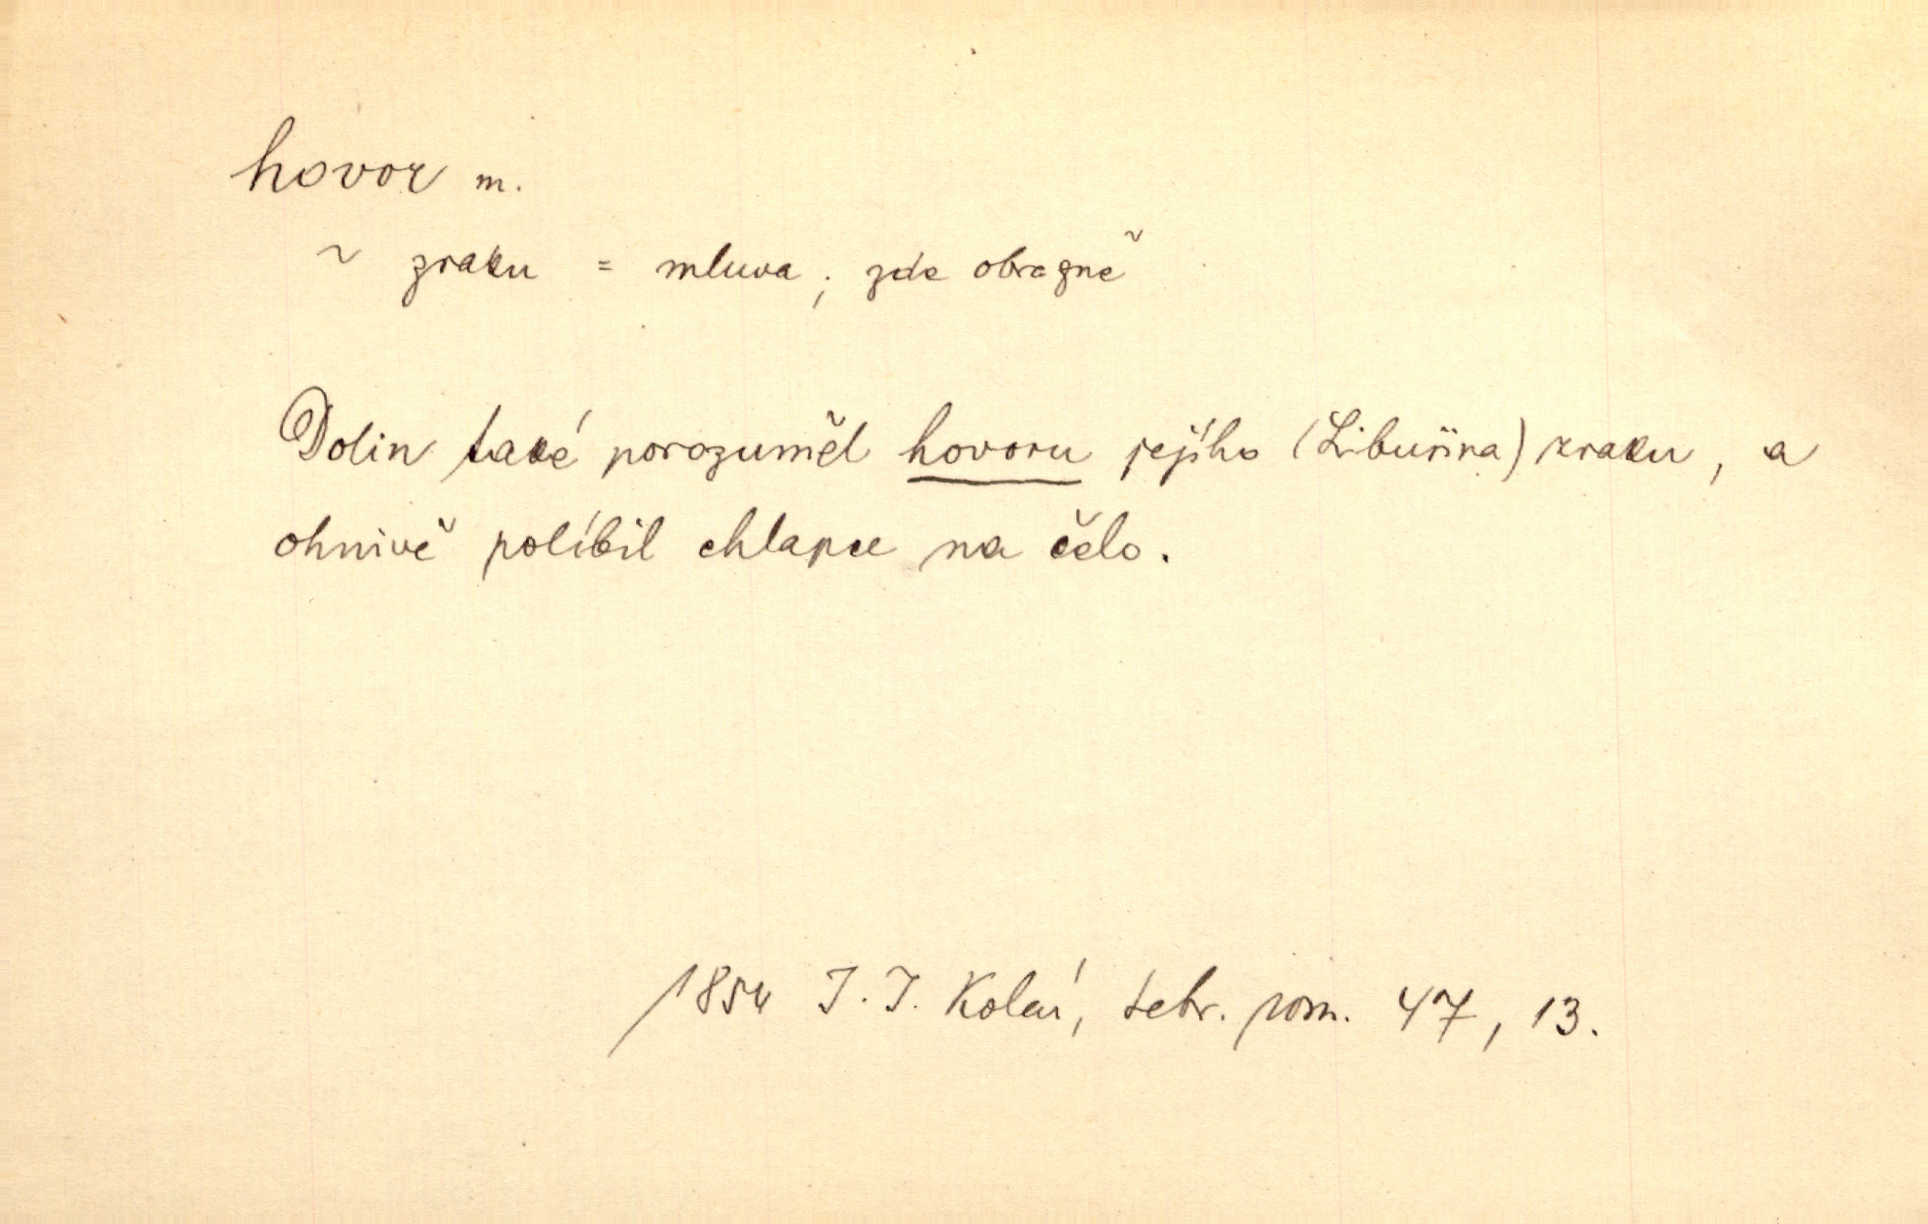 hovor m.
~ zraku = mluva; zde obrazně
Dolin také porozuměl hovoru jejího (Libušina) zraku, a
ohnivě políbil chlapce na čelo.
1854 J. J. Kolár, sebr. rom. 47, 13.